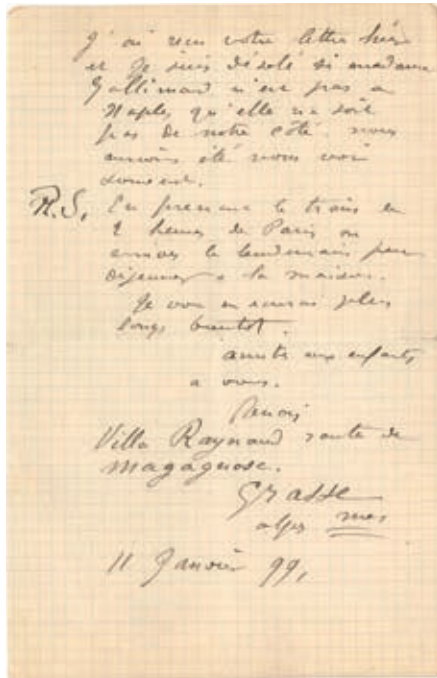 J'ai reçu votre lettre hier
et Je suis désolé si madame
Gallimard n'est pas a
Naples qu'elle ne soit
pas de notre côté. nous
aurions été vous voir
souvent.
P.S. En prenant le train de
2 heures de Paris on
arrive le lendemain pour
dejeuner a la maison.
Je vous en aurai plus
long bientot.
amities aux enfants
a vous.
Renoir
Villa Raynaud route de
Magagnosc.
Grasse
alpes mmes
11 Janvier 99,